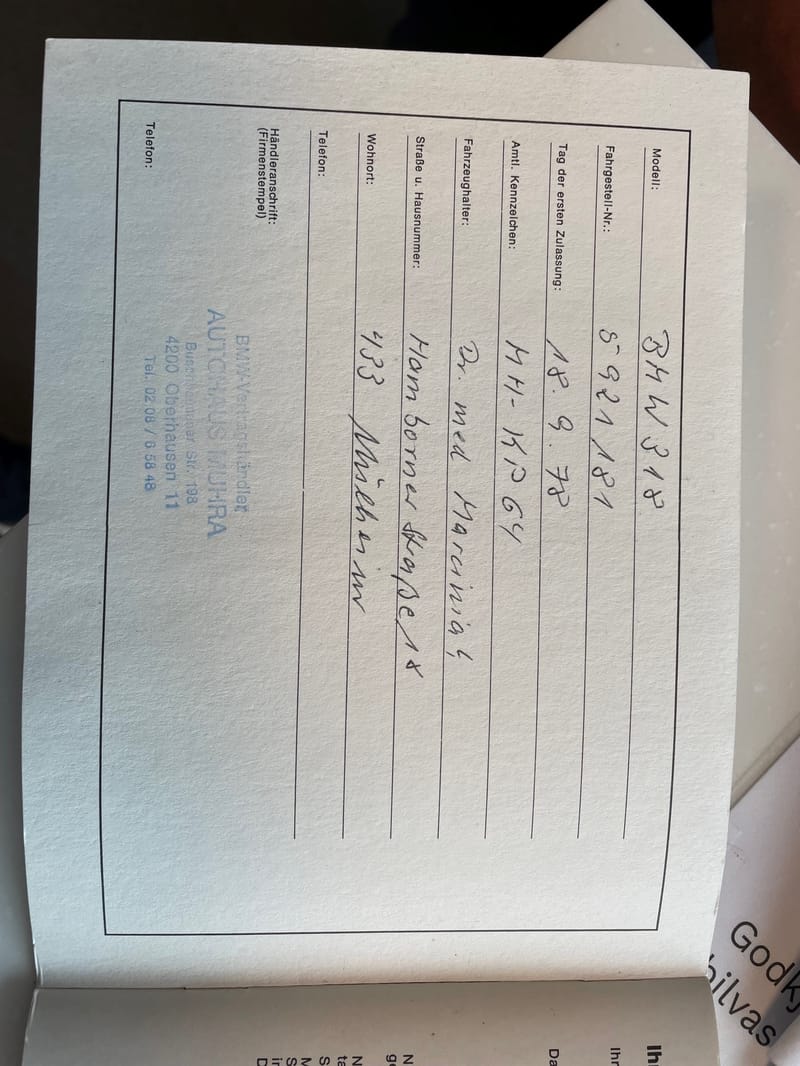 Modell: BMW 318
Fahrgestell-Nr.: 5921181
Tag der ersten Zulassung: 18.9.78
Amtl. Kennzeichen: MH-KP 64
Fahrzeughalter: Dr. med Marciniak
Straße u. Hausnummer: Hamborner Straße 18
Wohnort: 433 Mülheim
Telefon:
Händleranschrift:
(Firmenstempel)
BMW-Vertragshändler
AUTOHAUS MUHRA
Str. 198
4200 Oberhausen 11
Tel. 02 08 / 6 58 48
Telefon: